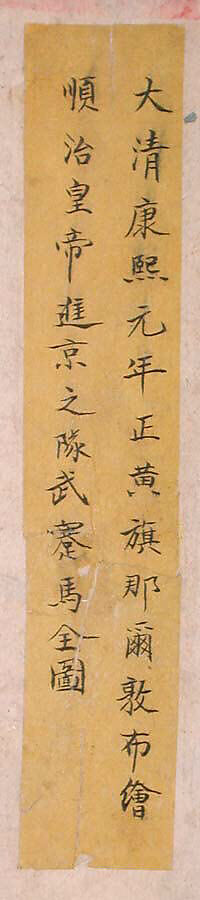 大清康熙元年正黄旗那爾敦布繪
順治皇帝進京之隊武蹇馬全圖